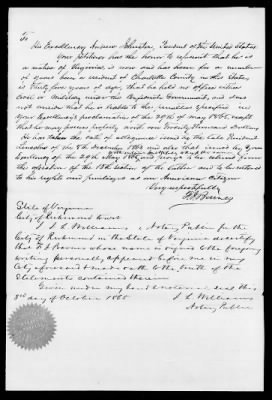 To
His Excellency Andrew Johnson, President of the United States
Your petitioner has the honor to represent that he is
a native of Virginia, is now and has been for a number
of years been a resident of Charlotte County in this State,
is thirty five years of age; that he held no office either
civil or military under the Confederate Government, and does
not consider that he is liable to the penalties specified in
Your Excellency's proclamation of the 29th of May 1865, except
that he may possess property worth over Twenty thousand dollars
He has taken the oath of allegiance issued by the late President
Lincoln of the 8th December 1863 and also that issued by Your
Excellency of the 29th May 1865, and prays to be relieved from
the operation of the 13th section of the latter and to be restored
to his rights and privileges as an American Citizen
Very respectfully
State of Virginia
City of Richmond to wit
I J L Williams, a Notary Public for the
City of Richmond in the State of Virginia do certify
that whose name is signed to the foregoing
writing personally appeared before me in my
City aforesaid & made oath to the truth of the
Statements contained therein
Given under my hand & notarial seal this
3rd day of October 1865
J L Williams
Notary Public